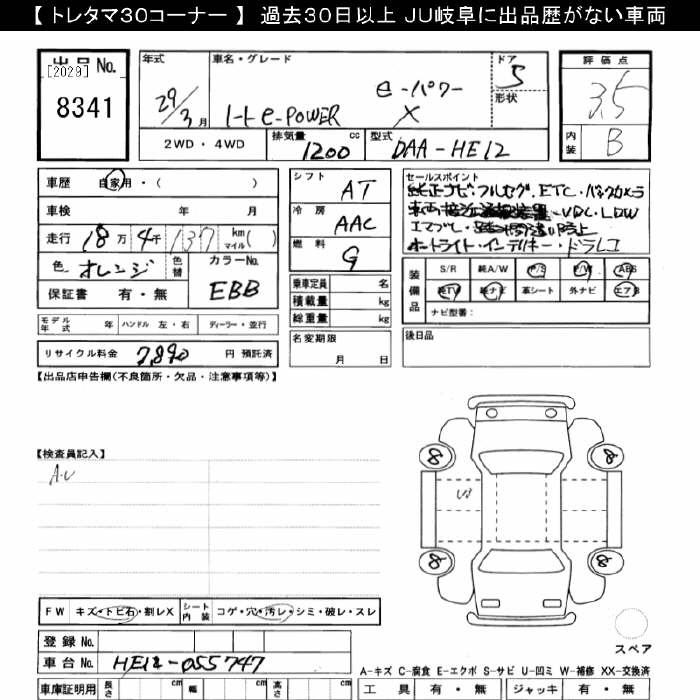 【 トレタマ30コーナー 】 過去30日以上 JU岐阜に出品歴がない車両
出品 No.
[2029]
8341
年式
29/3 月
車名・グレード
ノート e-POWER
e-パワー X
ドア
5
形状
評価点
3.5
内装
B
2WD ・ 4WD
排気量 1200 cc
型式 DAA-HE12
車歴 自家用 ・ ( )
車検 年 月
走行 18万 4千 137 km(マイル)( )
色 オレンジ 色替 カラーNo. EBB
保証書 有 ・ 無
モデル年式 年 ハンドル 左・右 ディーラー・並行
リサイクル料金 7,890 円 預託済
シフト AT
冷房 AAC
燃料 G
乗車定員 名
積載量 kg
総重量 kg
名変期限 月 日
セールスポイント
純正ナビ・フルセグ・ETC・バックカメラ
VDC・LDW
オートライト・インテリキー・ドラレコ
装備品
S/R 純A/W P/S P/W ABS
純TV 純ナビ 革シート 外ナビ エアB
ナビ型番:
後日品
【出品店申告欄(不良箇所・欠品・注意事項等)】
【検査員記入】
A.U
8 8
8 8
スペア
FW キズ・トビ石・割レX シート内装 コゲ・穴・汚レ・シミ・破レ・スレ
登録 No.
車台 No. HE12-055747
A-キズ C-腐食 E-エクボ S-サビ U-凹ミ W-補修 XX-交換済
車庫証明用 長さ cm 幅 cm 高さ cm
工具 有 ・ 無 ジャッキ 有 ・ 無